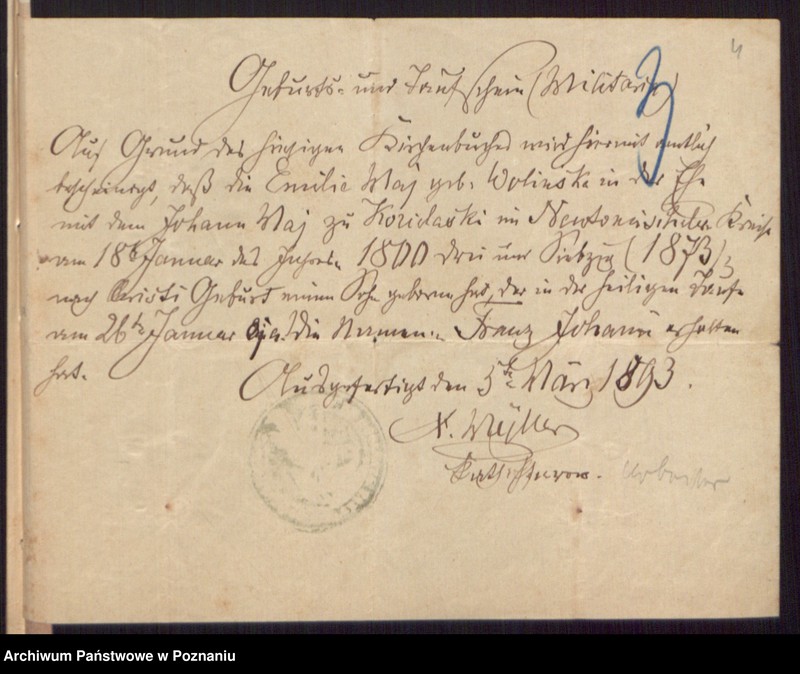 4
Geburts- und Taufschein (Militaria)
3
Auf Grund des hiesigen Kirchenbuches wird hiermit amtlich
bescheinigt, daß die Emilie Maj geb. Wolinska in der Ehe
mit dem Johann Maj zu im Kreise
am 18t Januar des Jahres 1800 drei und Siebzig (1873)
nach Christi Geburt einen Sohn geboren hat, der in der heiligen Taufe
am 26te Januar die Namen: Franz Johann erhalten
hat.
Ausgefertigt den 5te März 1893.
Arbeiter
Archiwum Państwowe w Poznaniu